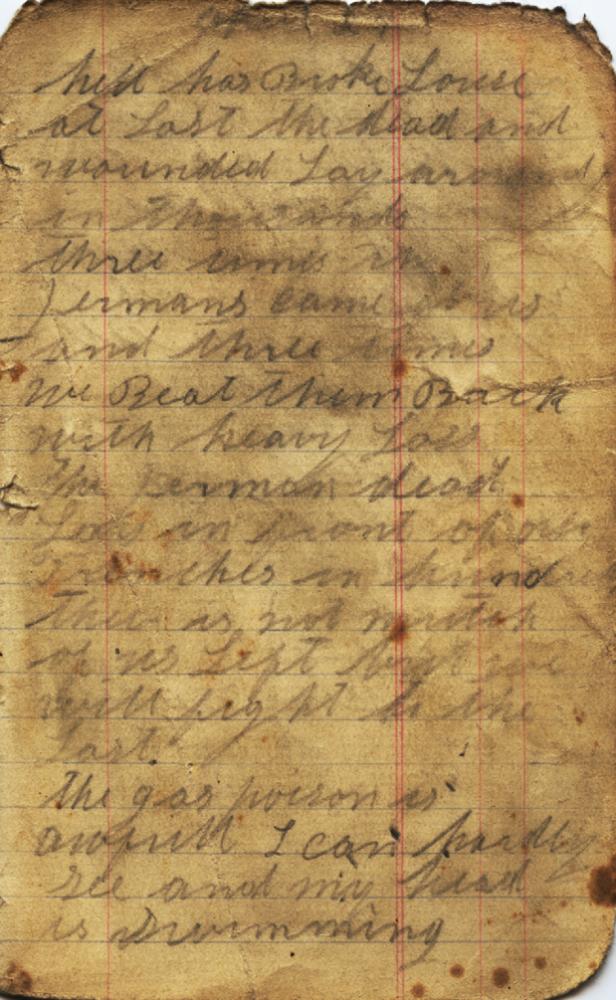 hell has Broke Louse
at Last the dead and
wounded Lay around
in thousands
three times the
germans came at us
and three times
we Beat them Back
with heavy Loss
the german dead
Lies in front of our
Trenches in hundreds
their is not mutch
of us Left but we
will fight to the
Last
the gas poison is
awfull I can hardly
see and my head
is Swimming